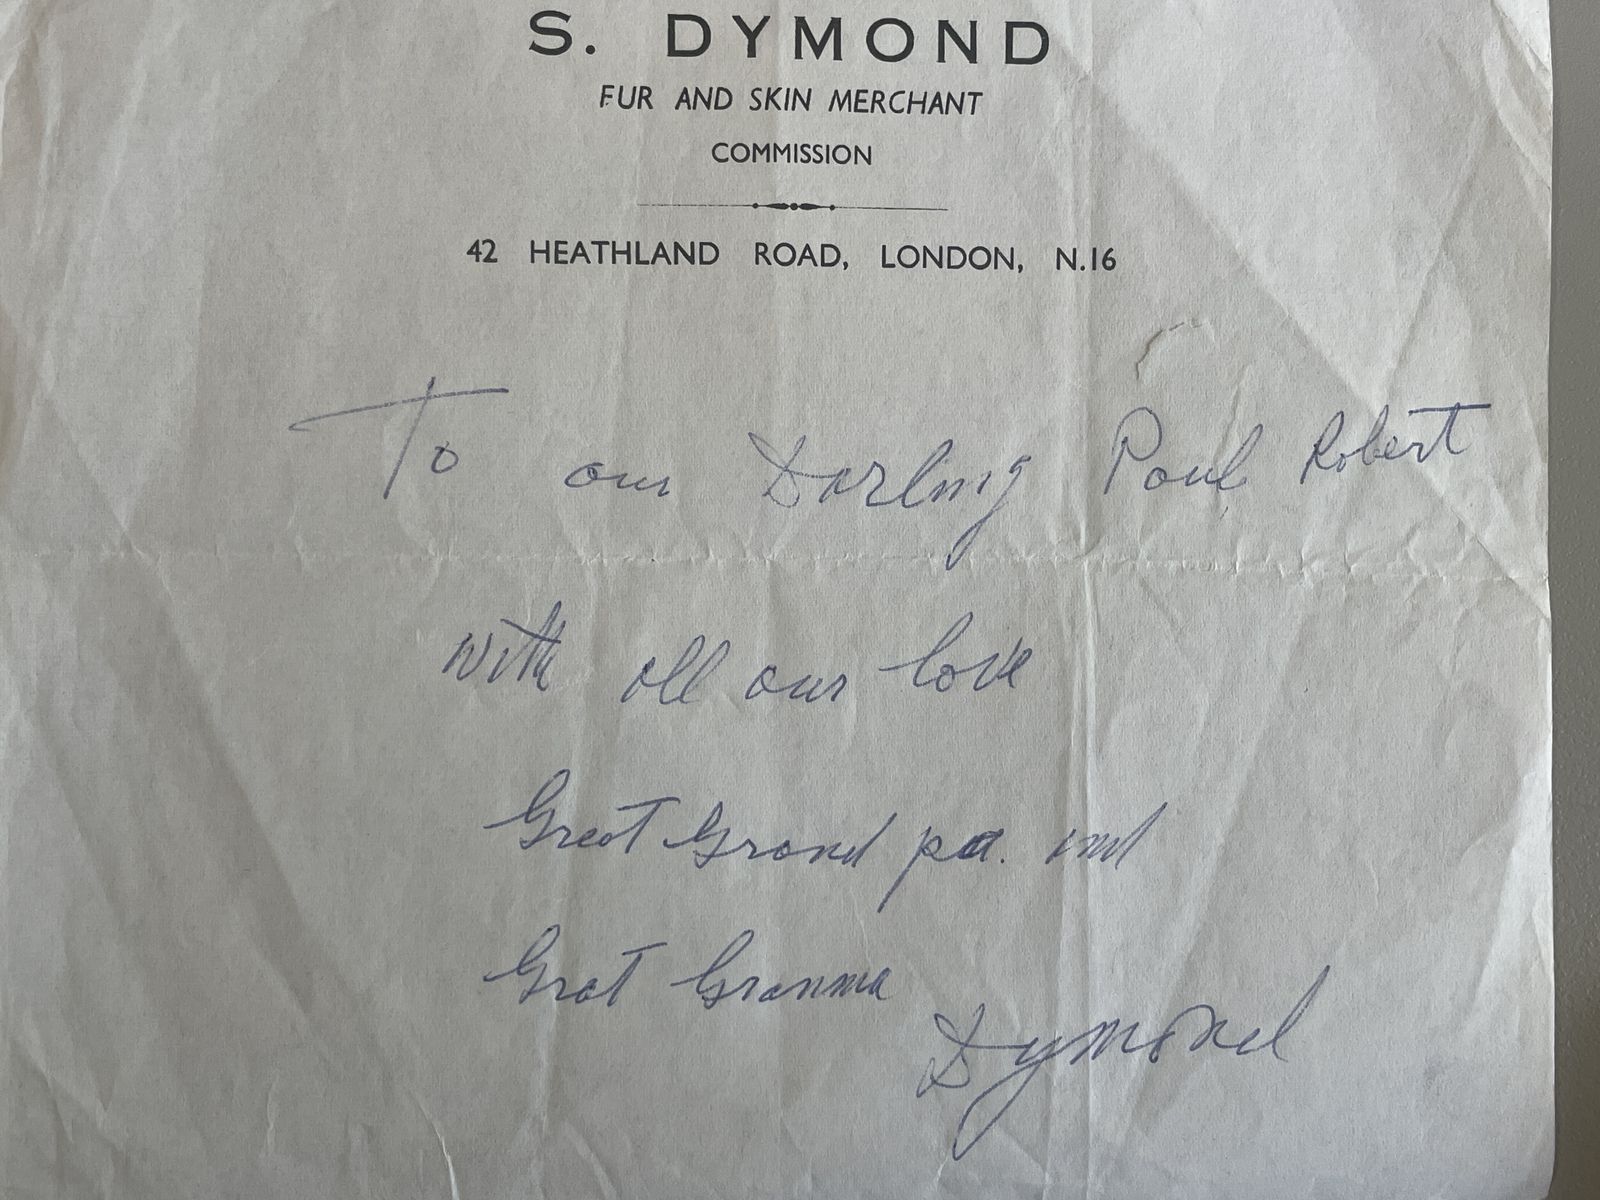 S. DYMOND
FUR AND SKIN MERCHANT
COMMISSION
42 HEATHLAND ROAD, LONDON, N.16
To our Darling Paul Robert
with all our love
Great Grand pa. and
Grat Granma
Dymond